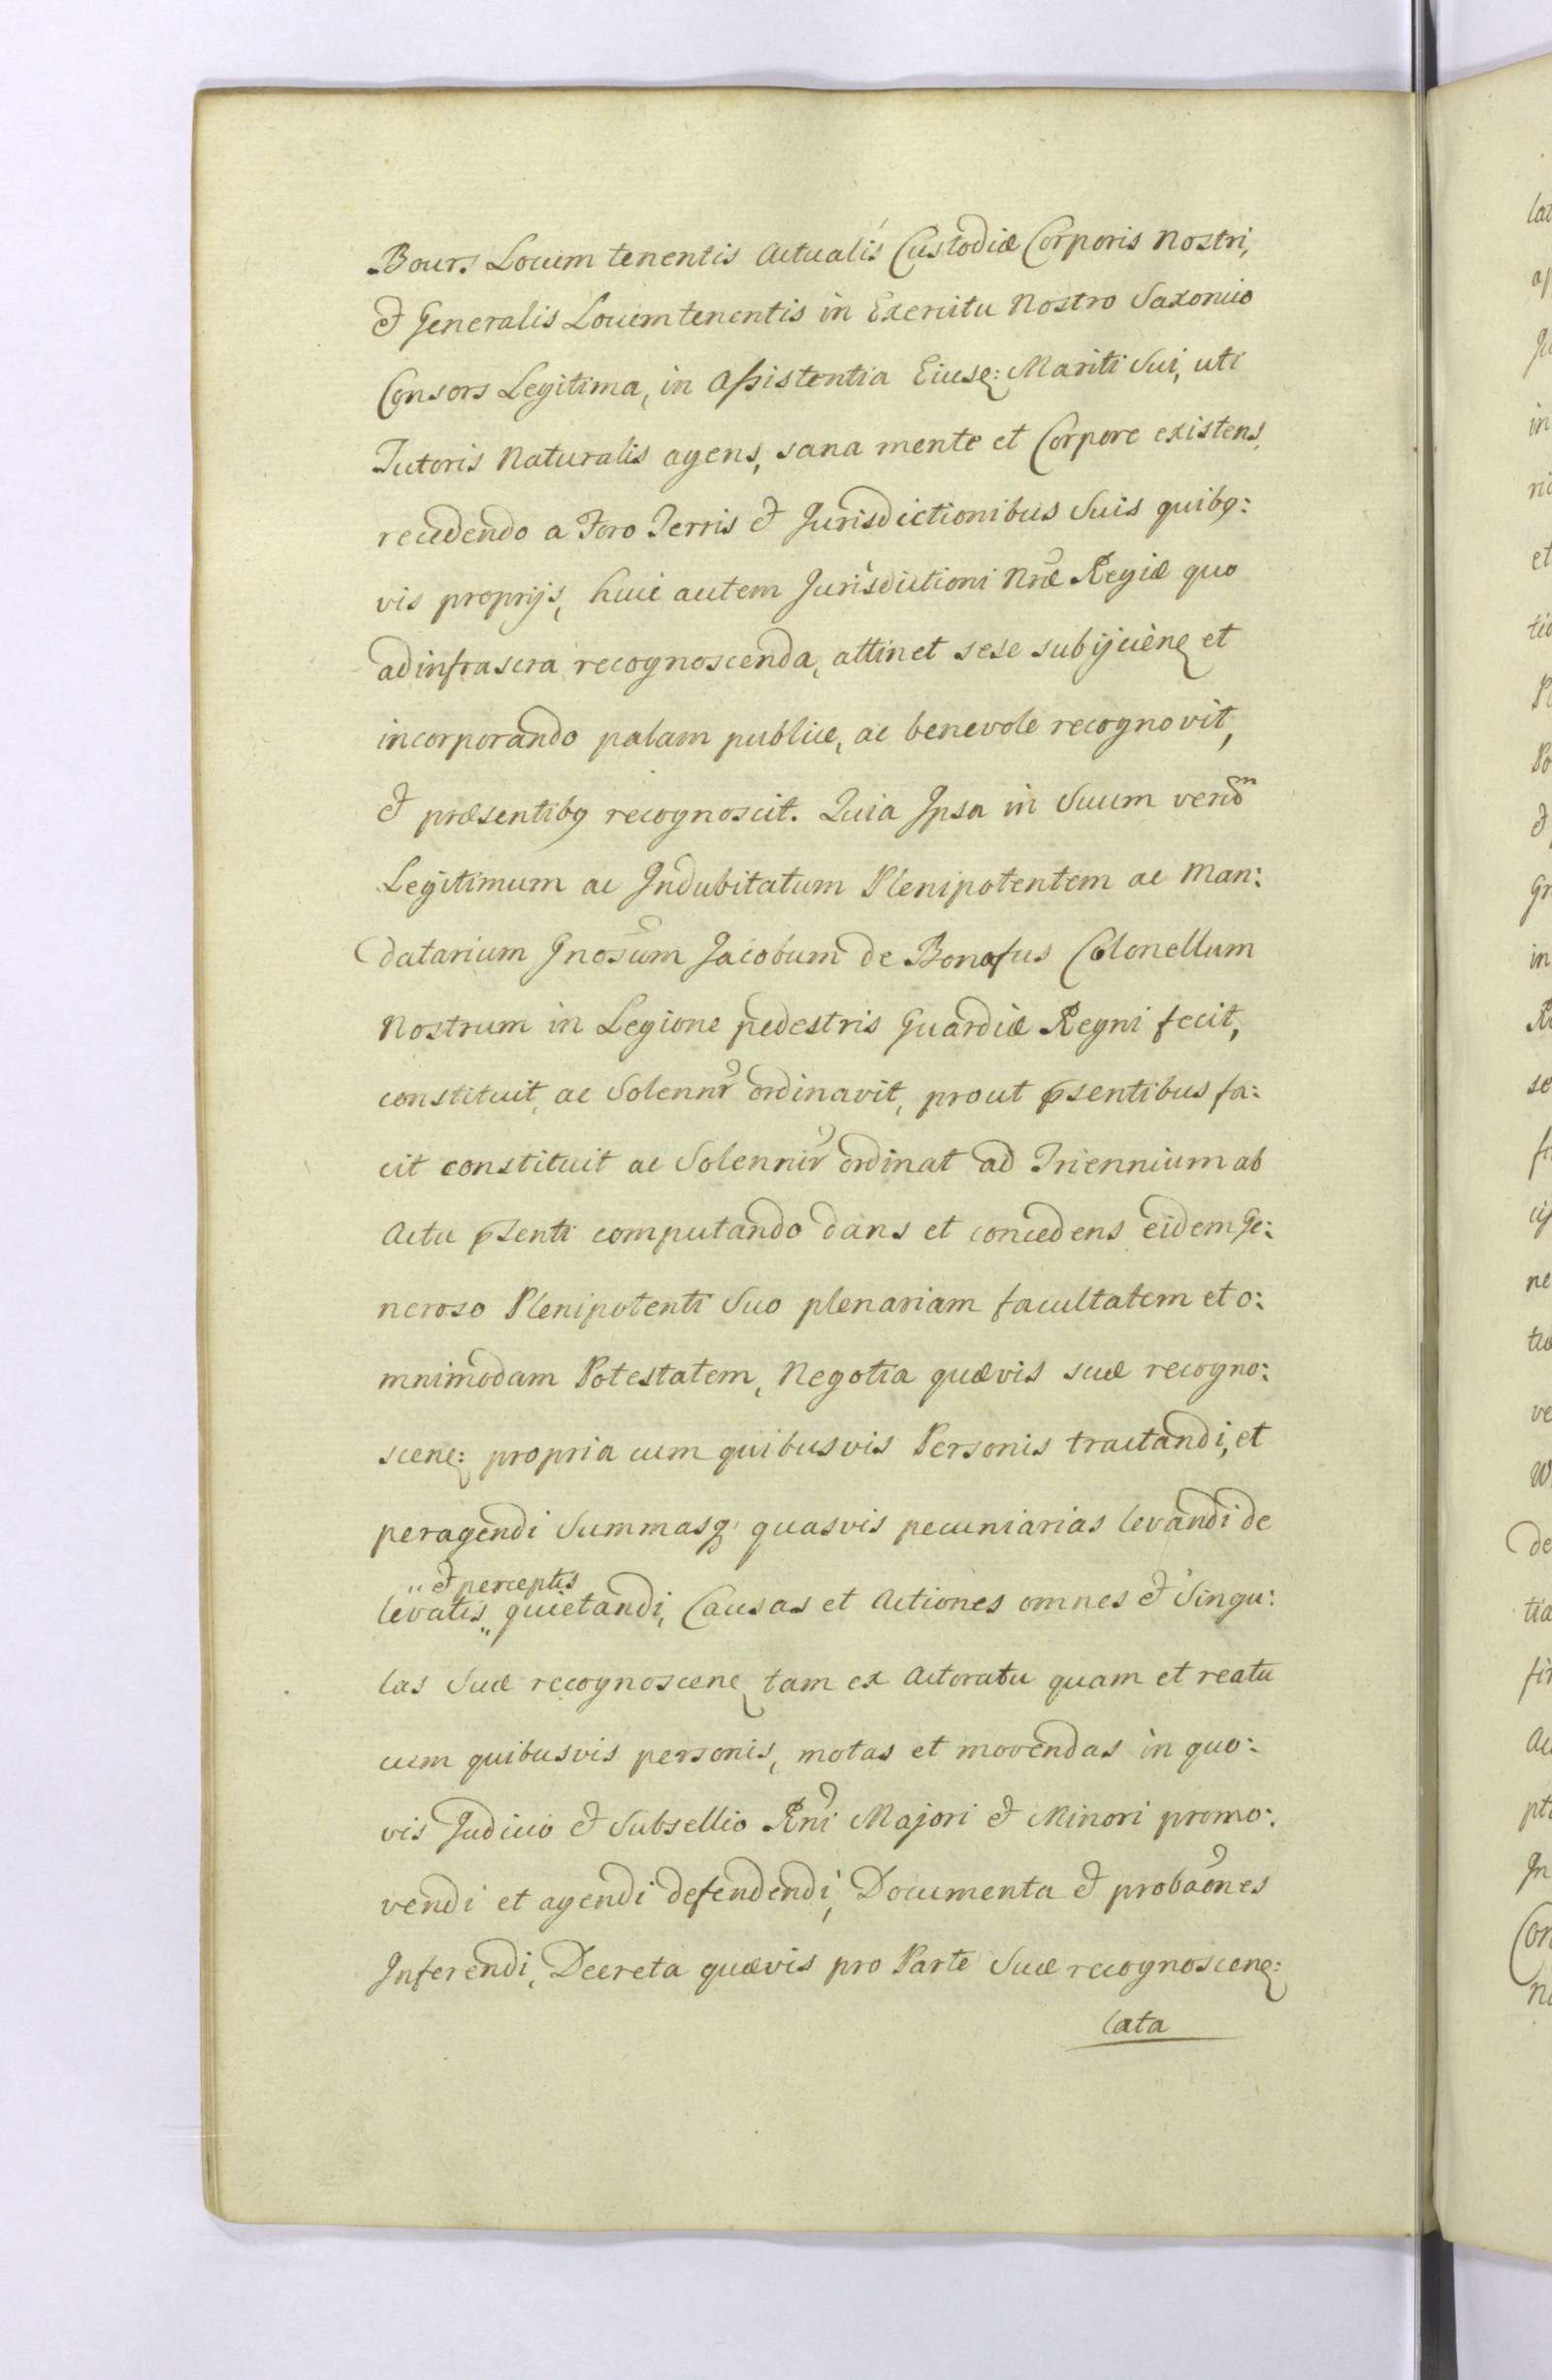 Bours Locum tenentis Actualis Custodiæ Corporis Nostri,
& Generalis Locumtenentis in Exercitu Nostro Saxonico
Consors Legitima, in Assistentia Eiusq: Mariti Sui, uti
Tutoris Naturalis agens, sana mente et Corpore existens,
recedendo a Foro Terris & Jurisdictionibus Suis quibq:
vis proprijs, huic autem Jurisdictioni Nr̃æ Regiæ quo
ad infrascra recognoscenda, attinet sese subijcieñ et
incorporando palam publice, ac benevole recognovit,
& præsentibq recognoscit. Quia Ipsa in Suum verũ
Legitimum ac Indubitatum Plenipotentem ac Man:
datarium Gnosum Jacobum de Bonafus Colonellum
Nostrum in Legione pedestris Guardiæ Regni fecit,
constituit, ac Solennr̃ ordinavit, prout pſentibus fa:
cit constituit ac Solennir̃ ordinat ad Triennium ab
Actu pſenti computando dans et concedens eidem Ge:
neroso Plenipotenti Suo plenariam facultatem et o:
mnimodam Potestatem, Negotia quævis suæ recogno:
sceñ: propria cum quibusvis Personis tractandi, et
peragendi Summasq quasvis pecuniarias levandi de
" & perceptis
levatis " quietandi, Causas et Actiones omnes & Singu:
las Suæ recognosceñ tam ex Actoratu quam et reatu
cum quibusvis personis, motas et movendas in quo:
vis Judicio & Subsellio Rñi Majori & Minori promo:
vendi et agendi defendendi, Documenta & probaõnes
Inferendi, Decreta quævis pro Parte Suæ recognosceñ:
lata